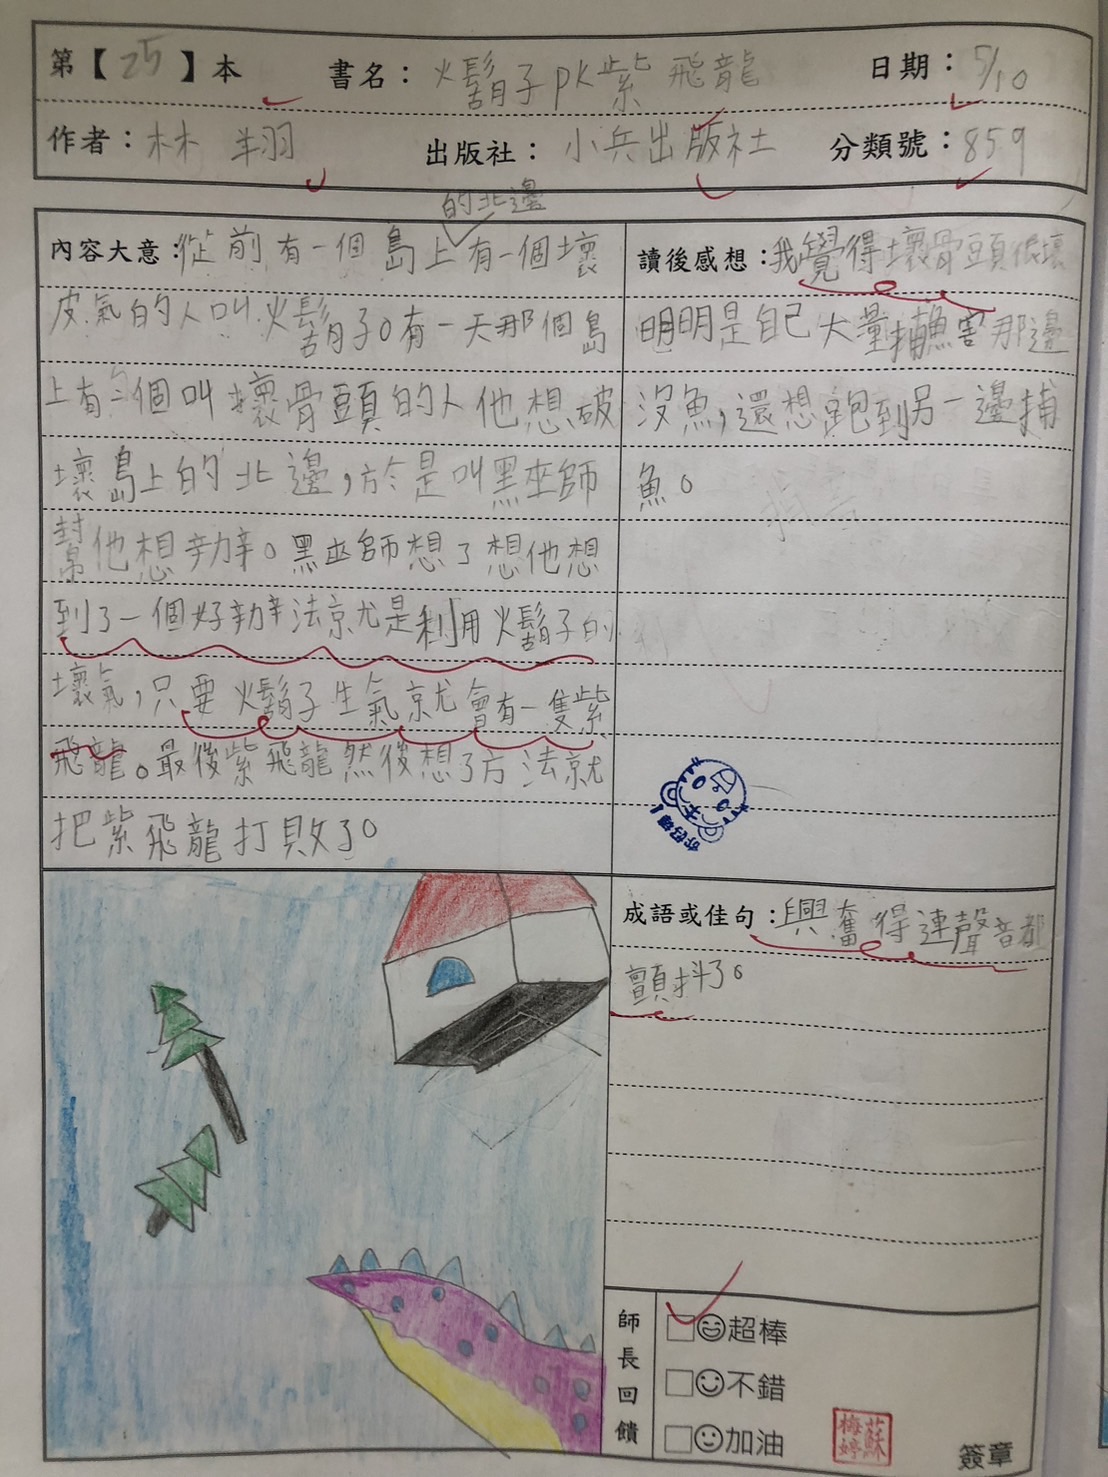 第【25】本 書名：火鬍子pk紫飛龍 日期：5/10
作者：林翔羽 出版社：小兵出版社 分類號：859
的北邊
內容大意：從前有一個島上有一個壞
皮氣的人叫火鬍子。有一天那個島
上有一個叫壞骨頭的人他想破
壞島上的北邊，於是叫黑巫師
幫他想辦。黑巫師想了想他想
到了一個好辦法就是利用火鬍子的
壞氣，只要火鬍子生氣就會有一隻紫
飛龍。最後紫飛龍然後想了方法就
把紫飛龍打敗了。
讀後感想：我覺得壞骨頭很壞
明明是自己大量捕魚害那邊
沒魚，還想跑到另一邊捕
魚。
你好棒！
成語或佳句：興奮得連聲音都
顫抖了。
師長回饋
超棒
不錯
加油
蘇梅婷
簽章